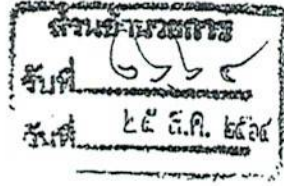 ส่วนอำนวยการ
รับที่ ๖๖๖๔
วันที่ ๒๕ ธ.ค. ๒๕๖๔